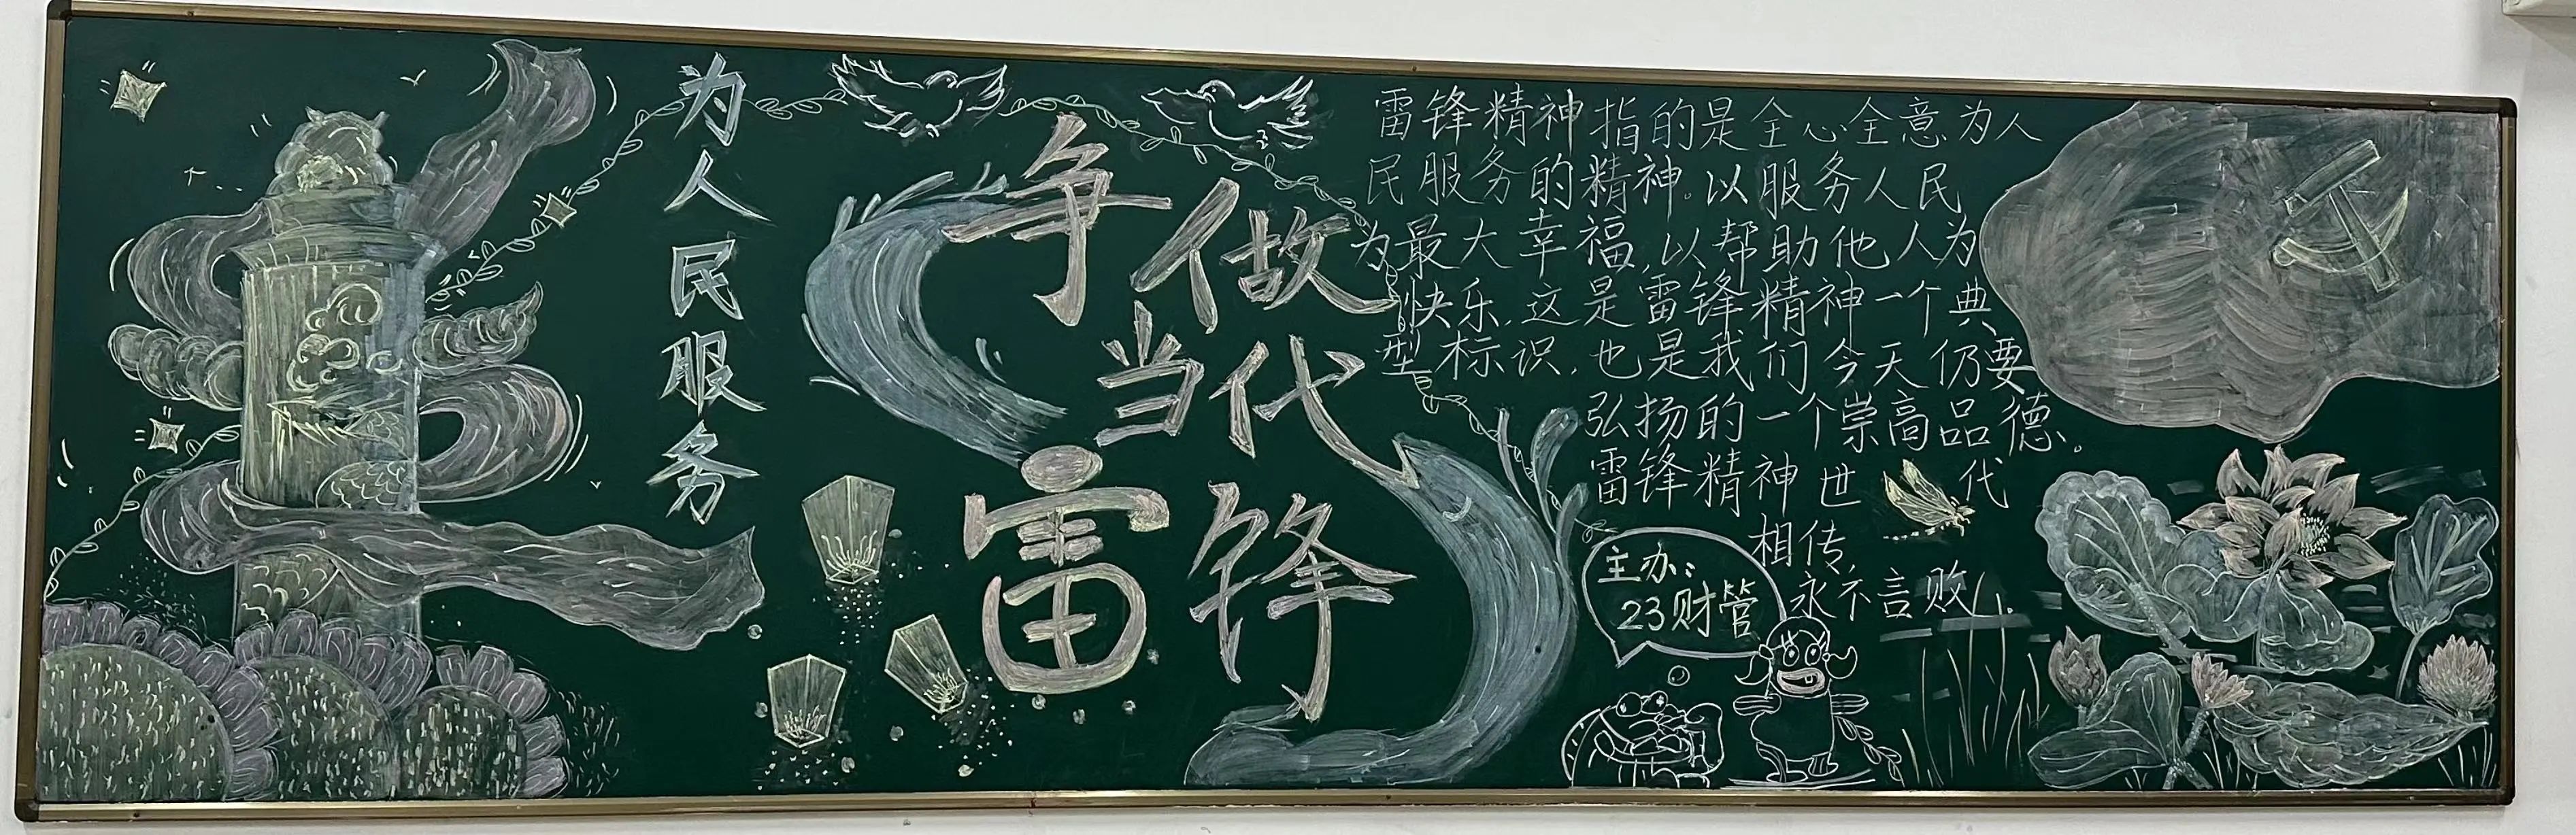 为人民服务
争做
当代
雷锋
雷锋精神指的是全心全意为人
民服务的精神。以服务人民
为最大幸福,以帮助他人为
快乐,这是雷锋精神一个典
型标识,也是我们今天仍要
弘扬的一个崇高品德。
雷锋精神世代
相传,
永不言败!
主办:
23财管